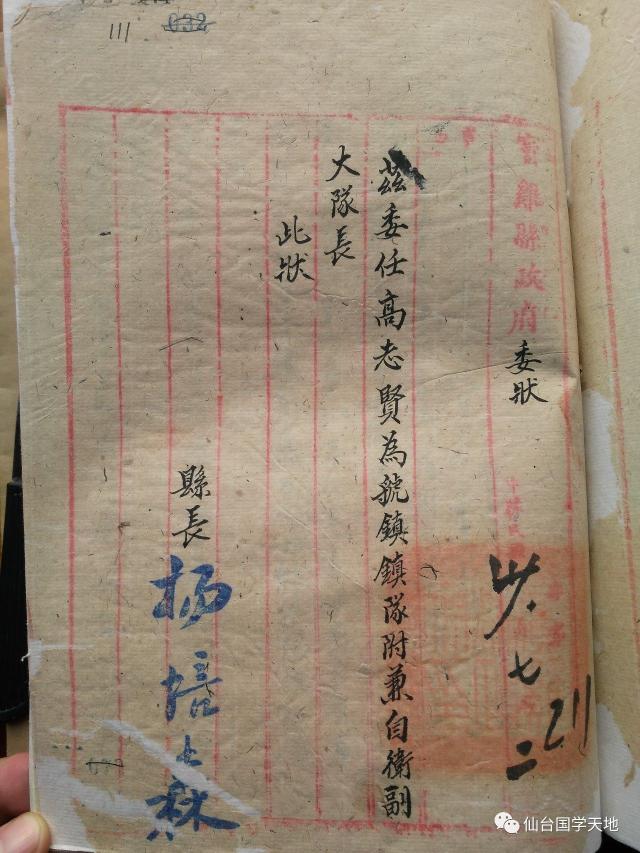 111
032
寶雞縣政府委狀
茲委任高志賢為虢鎮鎮隊附兼自衛副
大隊長
此狀
縣長 杨培
卅.七
二
仙台国学天地